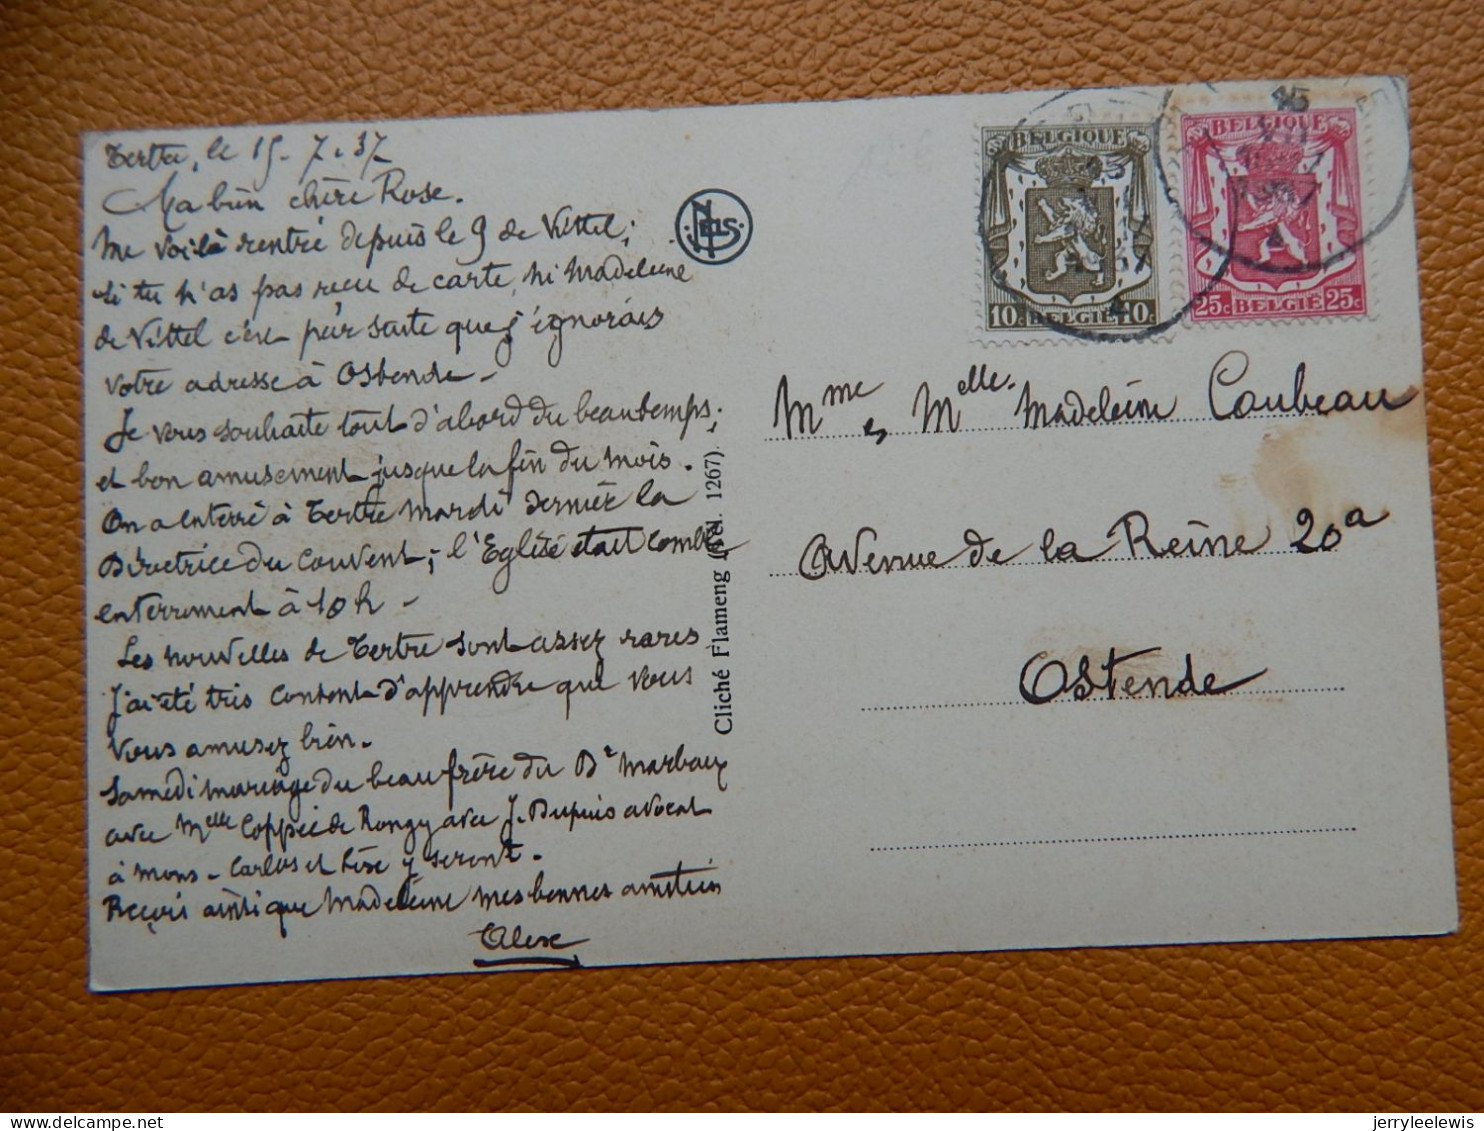 Tertre, le 15. 7. 37
Ma bien chère Rose.
Me voilà rentré depuis le 9 de Vittel;
si tu n'as pas reçu de carte, ni Madeleine
de Vittel c'est par suite que j'ignorais
votre adresse à Ostende -
Je vous souhaite tout d'abord du beau temps;
et bon amusement jusque la fin du mois.
On a enterré à Tertre mardi dernier la
Directrice du Couvent; l'Eglise était comble
enterrement à 10 h -
Les nouvelles de Tertre sont assez rares
J'ai été très content d'apprendre que vous
vous amusez bien.
Samedi mariage du beau frère du Dr Marbaix
avec Melle Coppée de Rongy avec J. Dupuis avocat
à Mons - Carlos et Lise y seront.
Reçois ainsi que Madeleine mes bonnes amitiés
Alex
NELS
Cliché Flameng (Mél. 1267).
BELGIQUE
10c BELGIË 10c
BELGIQUE
25c BELGIË 25c
Mme et Melle. Madeleine Caubeau
Avenue de la Reine 20a
Ostende
jerryleelewis